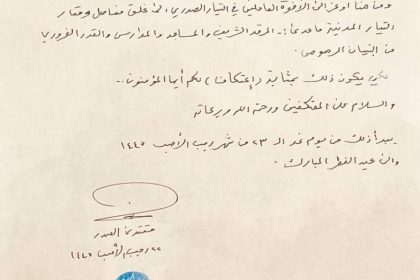 ومن هنا أوعز إلى الأخوة العاملين في التيار الصدري إلى غلق مفاصل ومقار
التيار المدنية ما عدا: المرقد الشريف والمساجد والمدارس والقدر الضروري
من البنيان المرصوص.
لكي يكون ذلك بمثابة (إعتكاف) لكم أيها المؤمنون..
والسلام على المعتكفين ورحمة الله وبركاته
يبدأ ذلك من يوم غد الـ ٢٣ من شهر رجب الأصب ١٤٤٥
والى عيد الفطر المبارك.
مقتدى الصدر
٢٢ رجب الأصب ١٤٤٥